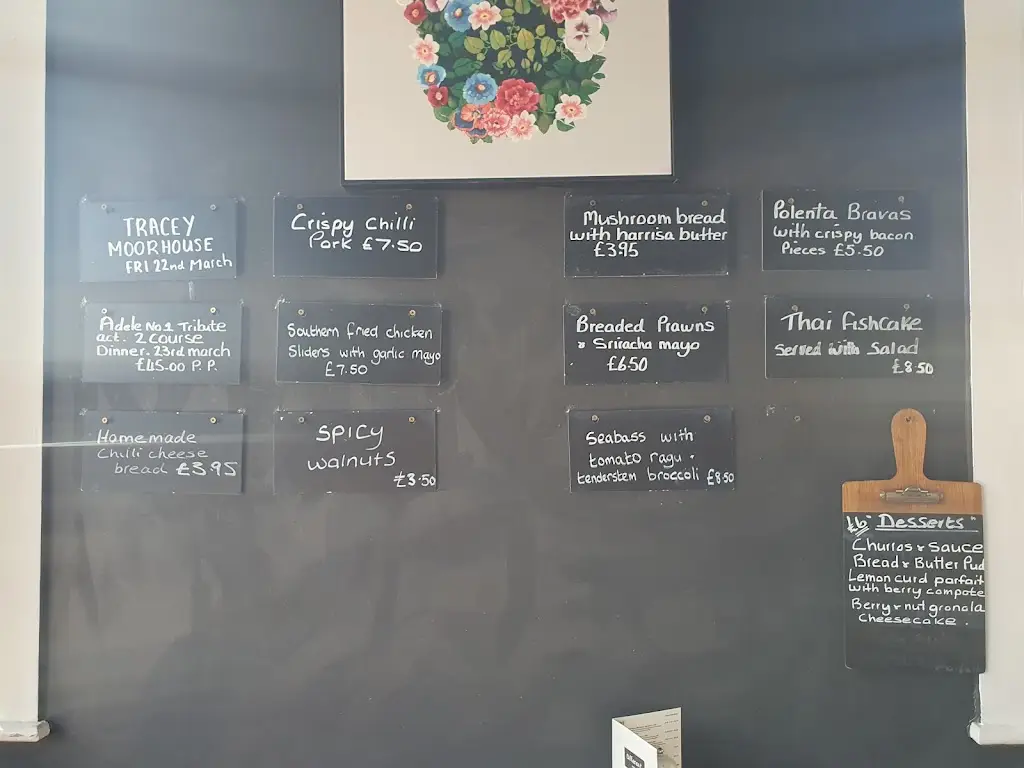 TRACEY
MOORHOUSE
FRI 22nd March
Crispy Chilli
Pork £7.50
Mushroom bread
with harrisa butter
£3.95
Polenta Bravas
with crispy bacon
Pieces £5.50
Adele No1 Tribute
act. 2 course
Dinner. 23rd march
£45.00 P.P.
Southern fried chicken
Sliders with garlic mayo
£7.50
Breaded Prawns
& Sriracha mayo
£6.50
Thai Fishcake
Served with Salad
£8.50
Homemade
Chilli cheese
bread £3.95
Spicy
walnuts
£3.50
Seabass with
tomato ragu.
tenderstem broccoli £8.50
£6 "Desserts"
Churros & Sauce
Bread & Butter Pud
Lemon curd parfait
with berry compote
Berry & nut granola
Cheesecake.